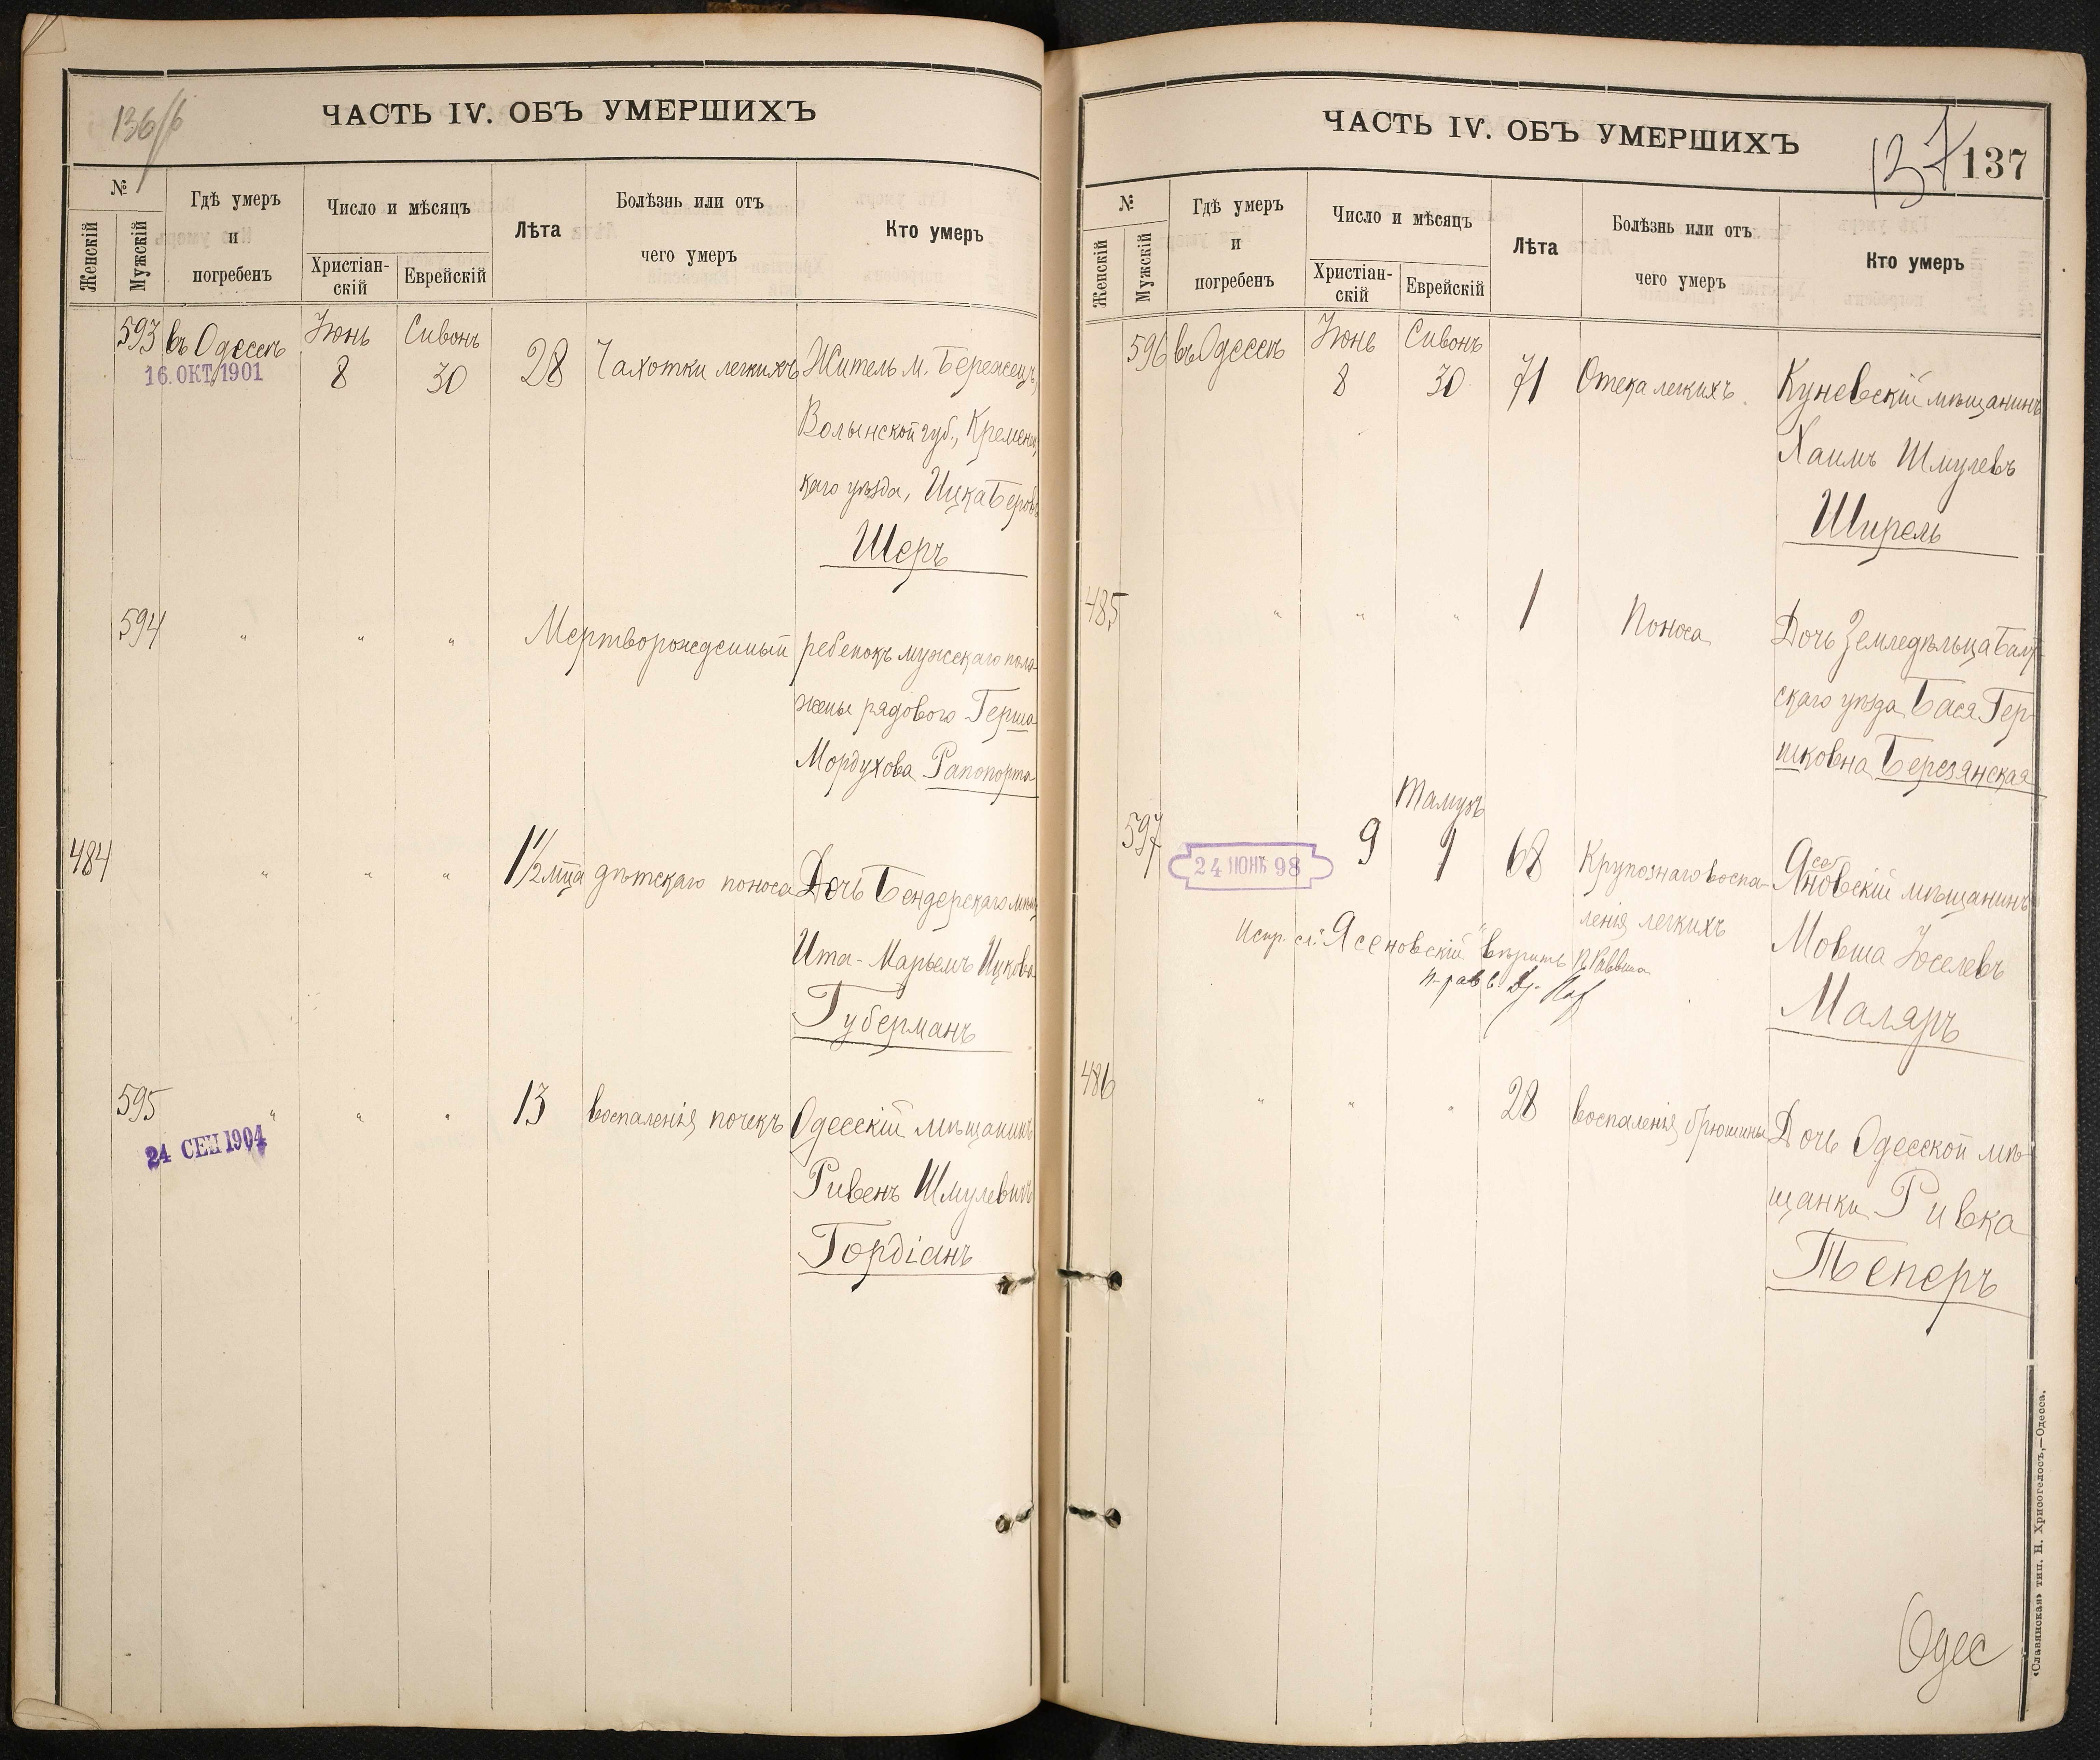 136/б
ЧАСТЬ IV. ОБЪ УМЕРШИХЪ
№
Женскій
Мужскій
Гдѣ умеръ
и
погребенъ
Число и мѣсяцъ
Христіан-
скій
Еврейскій
Лѣта
Болѣзнь или отъ
чего умеръ
Кто умеръ
593 въ Одессѣ Іюнь Сивонъ
16. ОКТ. 1901 8 30 28 Чахотки легкихъ Житель м. Бережецъ,
Волынской губ., Кременец-
каго уѣзда, Ицка Беровъ
Шеръ
594 " " " Мертворожденный ребенокъ мужскаго пола
жены рядового Герша
Мордухова Рапопорта
484 " " " 1 1/2 мѣца дѣтскаго поноса Дочь Бендерскаго мѣщ.
Ита-Марьемъ Ицкова
Губерманъ
595 " " " 13 воспаленія почекъ Одесскій мѣщанинъ
24 СЕН 1904
Ривенъ Шмулевичъ
Гордіанъ
ЧАСТЬ IV. ОБЪ УМЕРШИХЪ
137 137
№
Женскій
Мужскій
Гдѣ умеръ
и
погребенъ
Число и мѣсяцъ
Христіан-
скій
Еврейскій
Лѣта
Болѣзнь или отъ
чего умеръ
Кто умеръ
596 въ Одессѣ Іюнь Сивонъ
8 30 71 Отека легкихъ Куневскій мѣщанинъ
Хаимъ Шмулевъ
Ширель
485 " " " 1 Поноса Дочь Земледѣльца Балт-
скаго уѣзда Бася Гер-
шковна Березянская
Тамузъ
597 24 ІЮНЬ 98 9 1 68 Крупознаго воспа-
ленія легкихъ
Ясе
Яновскій мѣщанинъ
Мовша Іоселевъ
Маляръ
Испр. сл. "Ясеновскій" вѣрить
486 " " " 28 воспаленія брюшины Дочь Одесской мѣ-
щанки Ривка
Теперъ
Одес
«Славянская» тип. Н. Хрисогелосъ,—Одесса.